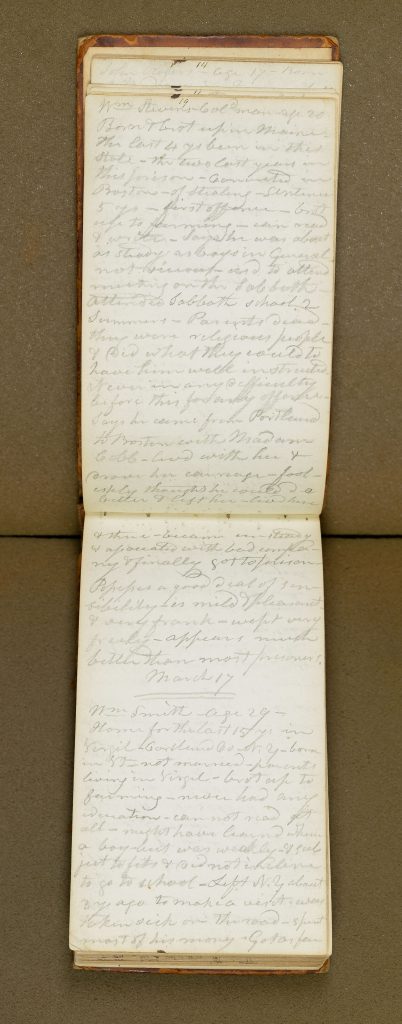 14
age 17 - Born
19
Wm Stevens Cold man age 20
Born & brot up in Maine
the last 4 ys been in this
State - the two last years in
this prison - Convicted in
Boston - of Stealing - Sentence
5 ys - first offence - brot
up to farming - can read
& write - Says he was about
as Steady as boys in General
not vicious - used to attend
meeting on the Sabbath -
attended Sabbath School 2
Summers - Parents dead -
they were religious people
& did what they could to
have him well instructed
Never in any difficulty
before this for any offence -
Says he came from Portland
to Boston with Madam
Cobb - lived with her &
drove her carriage - fool-
ishly thought he could do
better & left her - lived here
& there - became unsteady
& associated with bad compa-
ny & finally got to prison
Possesses a good deal of sen
sibility - is mild & pleasant
& very frank - wept very
freely - appears much
better than most prisoners.
March 17
Wm Smith - age 29 -
Home for the last 15 ys in
Virgil - Cortland Co - N.Y - born
in Vt - not married - parents
living in Virgil - brot up to
farming - never had any
education - can not read at
all - might have learnd when
a boy but was weakly - & sub
ject to fits & did not incline
to go to school - Left N.Y about
ys ago to make a visit - was
taken sick on the road - spent
most of his money - Got as far